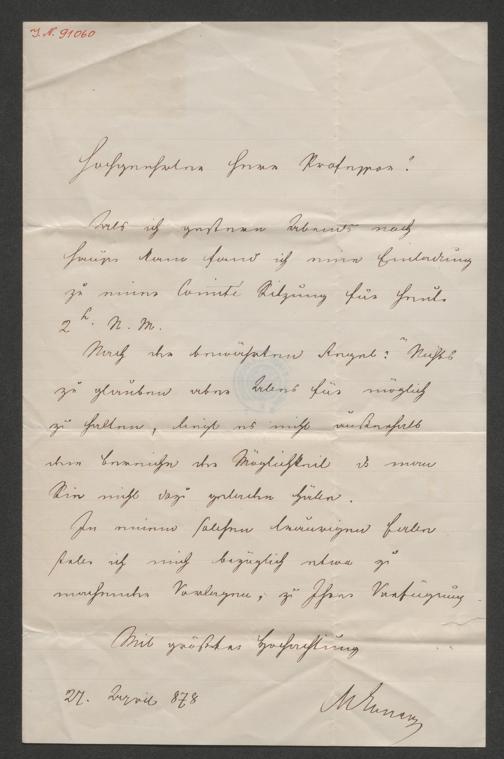 J. N. 91060
Hochgeehrter Herr Professor!
Als ich gestern Abends nach
Hause kam fand ich eine Einladung
zu einer Comité Sitzung für heute
2 h. N. M.
Nach der bewährten Regel: "Nichts
zu glauben aber Alles für möglich
zu halten, liegt es nicht außerhalb
dem Bereiche der Möglichkeit daß man
Sie nicht dazu geladen hätte.
In einem solchen traurigen Falle
stelle ich mich bezüglich etwa zu
machender Vorlagen, zu Ihrer Verfügung
Mit größter Hochachtung
27. April 878